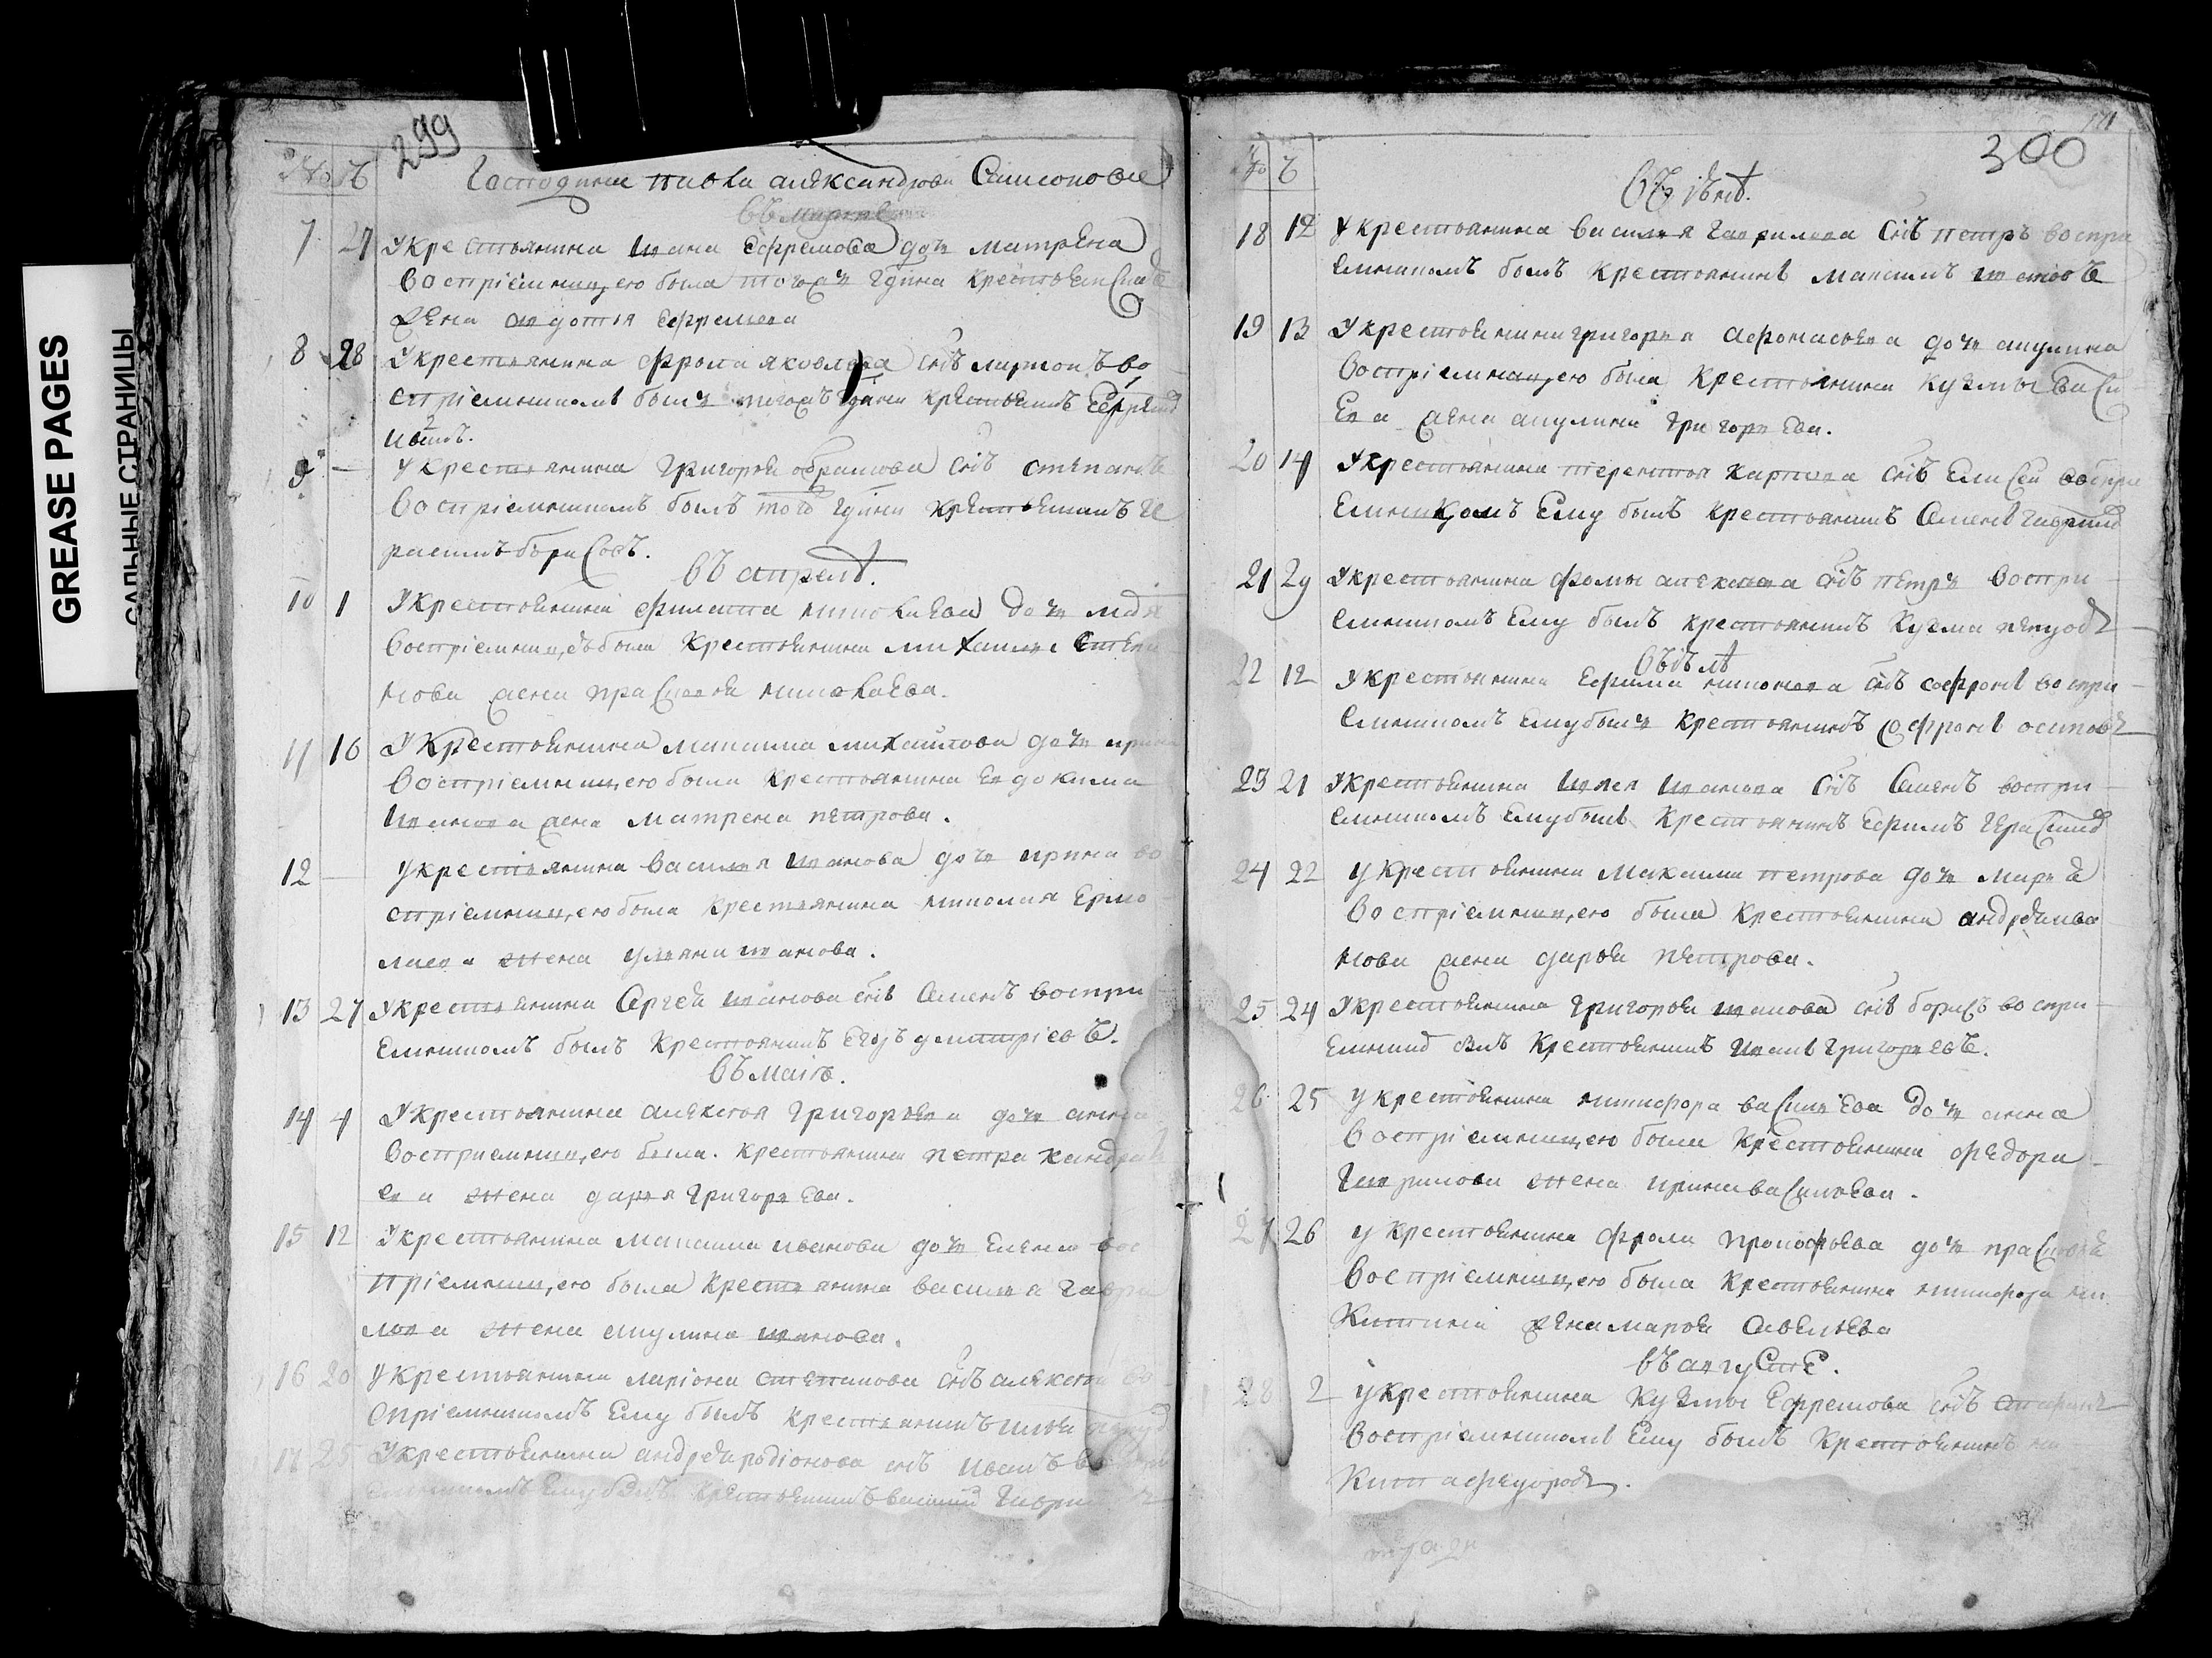 GREASE PAGES
САЛЬНЫЕ СТРАНИЦЫ
299
№ Ч
Господина павла александрова Самсонова
въ марте
7 27 У крестьянина ивана Ефремова дочь матрена
востріемницею была того ж гдина крестьенина
жена авдотья Ефремова
8 28 У крестьянина фрола яковлева снъ ларионъ во
спріемникомъ былъ того ж гдина крестьенинъ Ефремъ
ивановъ.
9 — У крестьянина григорья абрамова снъ степанъ
востріемникомъ былъ того гдина крестьенинъ ге
расимъ борисовъ.
въ апреле.
10 1 У крестьенина филипа николаева дочь
востріемницею была крестьенина михаила степа
нова жена прасковья николаева.
11 16 У крестьенина максима михайлова дочь ирина
востріемницею была крестьянина евдокима
иванова жена матрена петрова.
12 — У крестьянина василья иванова дочь ирина во
спріемницею была крестьянина николая Ермо
лаева жена ульяна иванова.
13 27 У крестьянина Сергея иванова снъ Семенъ воспри
емникомъ былъ крестьянинъ Егоръ дмитріевъ.
въ маіе.
14 4 У крестьянина алексея григорьева дочь анна
восприемницею была. крестьянина петра кандрать
ева жена дарья григорьева.
15 12 У крестьянина максима иванова дочь Елена вос
пріемницею была крестьянина василья гаври
лова жена акулина иванова.
16 20 У крестьянина лариона степанова снъ алексей во
спріемникомъ Ему былъ крестьянинъ илья
17 25 У крестьенина андрея родіонова снъ иванъ воспри
емникомъ Ему былъ крестьенинъ василий гаврил
171
300
№ Ч
въ іюне.
18 12 У крестьянина василья гаврилова снъ петръ воспри
емникомъ былъ крестьянинъ максимъ ивановъ
19 13 У крестьенина григорья афонасьева дочь акулина
востріемницею была крестьянина кузмы васи
Ева жена акулина григорьева.
20 14 У крестьянина терентья карпова снъ Елисей воспри
Емникомъ Ему былъ крестьянинъ Семенъ гаврил
21 29 У крестьянина фомы алексеева снъ петръ воспри
емникомъ Ему былъ крестьянинъ кузма
въ іюле
22 12 У крестьянина Ефима снъ софронъ воспри
емникомъ Ему былъ крестьянинъ софронъ осиповъ
23 21 У крестьенина ильи иванова снъ Семенъ воспри
емникомъ Ему былъ крестьянинъ Ефимъ герасимо
24 22 У крестьенина максима петрова дочь марья
востріемницею была крестьенина андрея ива
нова жена дарья петрова.
25 24 У крестьенина григорья иванова снъ борисъ воспри
емнико былъ крестьенинъ иванъ григорьевъ.
26 25 У крестьенина никифора васильева дочь анна
востріемницею была крестьенина федора
гаврилова жена ирина васильева.
27 26 У крестьенина фрола прокофьева дочь прасковья
воспріемницею была крестьенина никифора ни
китина жена марья савельева
въ августе.
28 2 У крестьенина кузмы Ефремова снъ степанъ
востріемникомъ Ему былъ крестьенинъ ни
кита федоровъ.